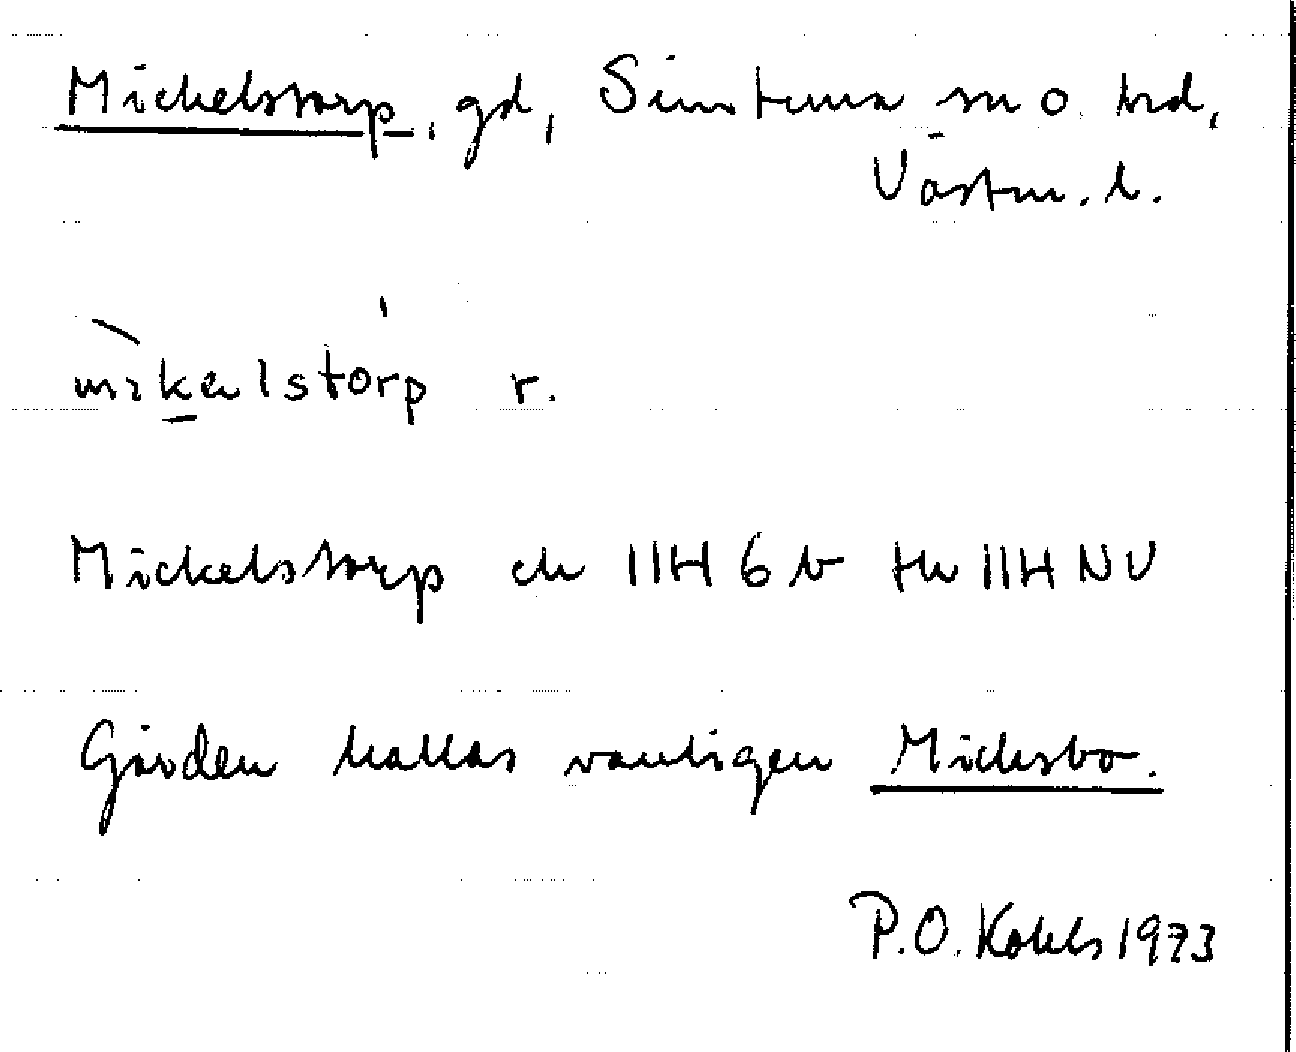 Mickelstorp, gd, Simtuna sn o hrd,
Västm. l.
mɪkəlstorp r.
Mickelstorp ek 11H 6 b tk 11H NV
Gården kallas vanligen Micksbo.
P.O. Kohls 1973